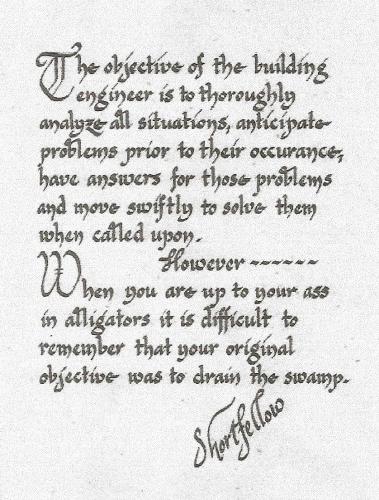 The objective of the building
engineer is to thoroughly
analyze all situations, anticipate
problems prior to their occurance,
have answers for those problems
and move swiftly to solve them
when called upon.
However ------
When you are up to your ass
in alligators it is difficult to
remember that your original
objective was to drain the swamp.
Shortfellow